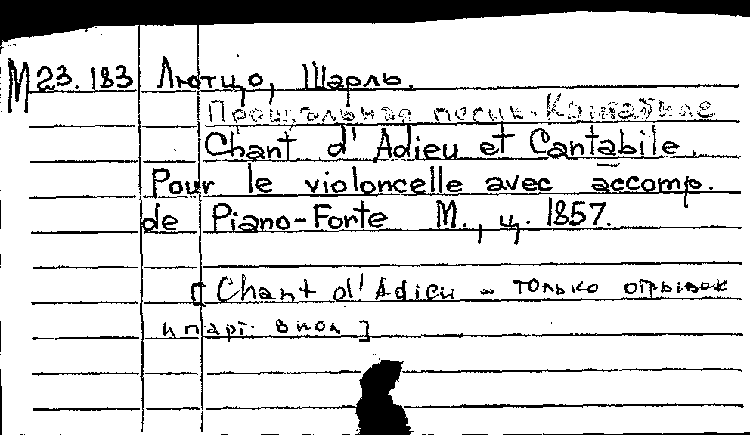 М 23.183 Лютцо, Шарль.
Прощальная песнь. Кантабиле
Chant d' Adieu et Cantabile.
Pour le violoncelle avec accomp.
de Piano-Forte М., ц. 1857.
[Chant d' Adieu - только отрывок
и парт. виол]